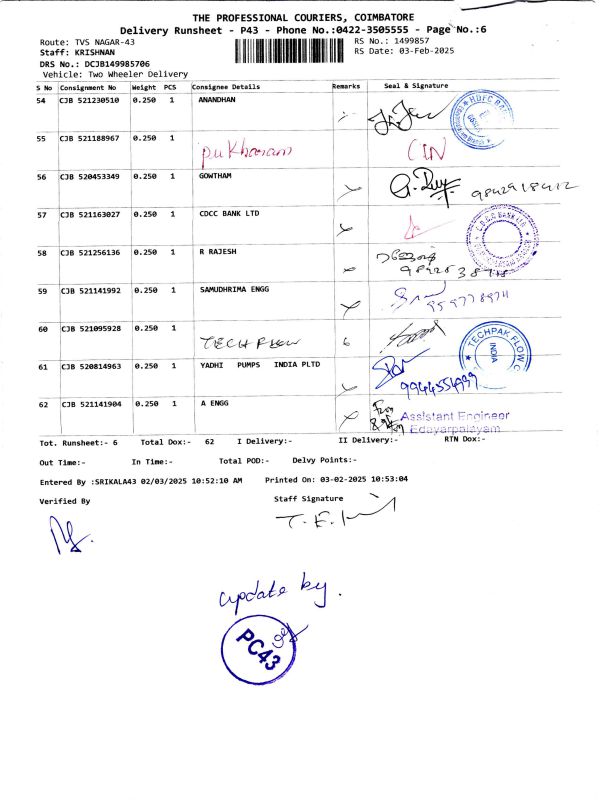 THE PROFESSIONAL COURIERS, COIMBATORE
Delivery Runsheet - P43 - Phone No.:0422-3505555 - Page No.:6
Route: TVS NAGAR-43 RS No.: 1499857
Staff: KRISHNAN RS Date: 03-Feb-2025
DRS No.: DCJB149985706
Vehicle: Two Wheeler Delivery
S No Consignment No Weight PCS Consignee Details Remarks Seal & Signature
54 CJB 521230510 0.250 1 ANANDHAN
55 CJB 521188967 0.250 1
Pukharam
56 CJB 520453349 0.250 1 GOWTHAM
9842918412
57 CJB 521163027 0.250 1 CDCC BANK LTD
58 CJB 521256136 0.250 1 R RAJESH
59 CJB 521141992 0.250 1 SAMUDHRIMA ENGG
60 CJB 521095928 0.250 1
TECH FLOW
TECHPAK FLOW
INDIA
61 CJB 520814963 0.250 1 YADHI PUMPS INDIA PLTD
62 CJB 521141904 0.250 1 A ENGG
Assistant Engineer
Edayarpalayam
Tot. Runsheet:- 6 Total Dox:- 62 I Delivery:- II Delivery:- RTN Dox:-
Out Time:- In Time:- Total POD:- Delvy Points:-
Entered By :SRIKALA43 02/03/2025 10:52:10 AM Printed On: 03-02-2025 10:53:04
Verified By Staff Signature
update by.
PC43